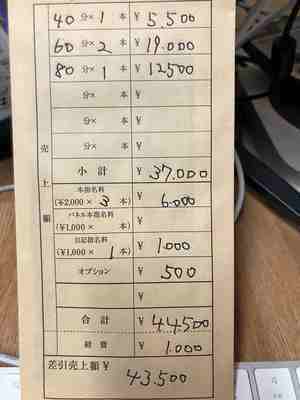 40分× 1 本 ¥ 5.500
60分× 2 本 ¥ 19.000
80分× 1 本 ¥ 12500
分× 本 ¥
分× 本 ¥
分× 本 ¥
売上額
小計 ¥ 37.000
本指名料
(¥2,000× 3 本) ¥ 6.000
パネル本指名料
(¥1,000× 本) ¥
日記指名料
(¥1,000× 1 本) ¥ 1.000
オプション ¥ 500
¥
合計 ¥ 44500
経費 ¥ 1.000
差引売上額¥
43.500